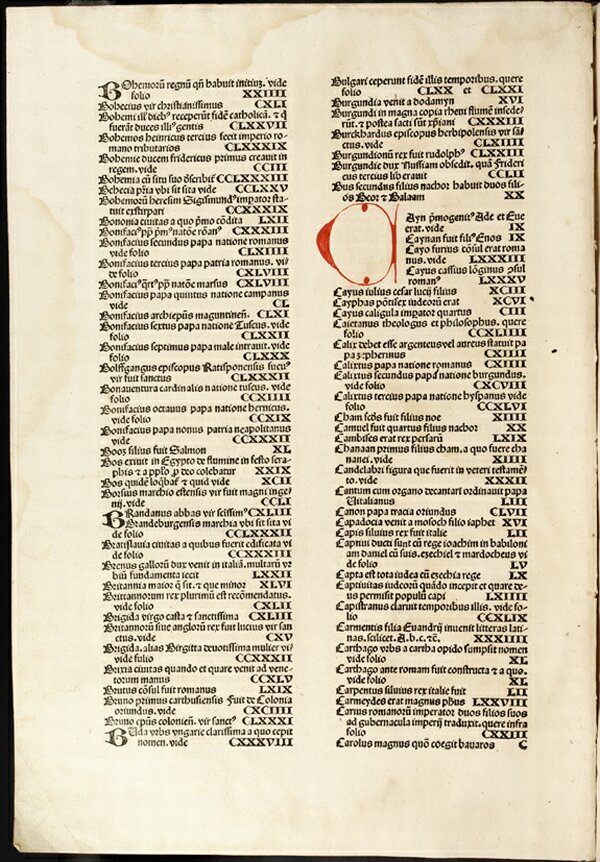 BOhemorũ regnũ qñ habuit initiũ. vide
folio XXIIII
Bohecius vir christianissimus CXLI
Bohemi ill' dieb' receperũt fidẽ catholicã. ⁊ q̃
fuerãt duces illi' gentis CLXXVII
Bohemos heinricus tercius fecit imperio ro-
mano tributarios CLXXXIX
Bohemie ducem fridericus primus creauit in
regem. vide CCIII
Bohemia cũ situ suo dẽscribit' CCLXXXIII
Bohecia p̃ria vbi sit sita vide CCLXXV
Bohemorũ heresim Sigismund' impator sta-
tuit extirpari CCXXXIX
Bononia ciuitas a quo p̃mo cõdita LXII
Bonifaci' pp p̃m' natõe rõan' CXXXIII
Bonifacius secundus papa natione romanus
vide folio CLXIIII
Bonifacius tercius papa patria romanus. vi-
de folio CXLVIII
Bonifaci' q̃rt' pp natõe marsus CXLVIII
Bonifacius papa quintus natione campanus
vide CL
Bonifacius archiepũs maguntineñ. CLXI
Bonifacius sextus papa natione Tuscus. vide
folio CLXXII
Bonifacius septimus papa male intrauit. vide
folio CLXXX
Bolffgangus episcopus Ratisponensis sueu'
vir fuit sanctus CLXXXII
Bonauentura cardinalis natione tuscus. vide
folio CCXIIII
Bonifacius octauus papa natione hernicus.
vide folio CCXIX
Bonifacius papa nonus patria neapolitanus
vide CCXXXII
Booz filius fuit Salmon XL
Bos exiuit in Egypto de flumine in festo sera-
phis ⁊ a pplo p̃ deo colebatur XXIX
Bos quidẽ loq̃bat' ⁊ quid vide XCII
Borsius marchio estensis vir fuit magni inge
nij. vide CCLI
BRandanus abbas vir scissim' CXLIII
Brandeburgensis marchia vbi sit sita vi
de folio CCLXXXII
Bratislauia ciuitas a quibus fuerit edificata vi
de folio CCXXXIII
Brenus gallorũ dux venit in italiã. multarũ vr
biũ fundamenta iecit LXXII
Britannia maior q̃ sit. ⁊ que minor XLVI
Brittannorum rex plurimũ est recõmendatus.
vide folio CXLII
Brigida virgo casta ⁊ sanctissima CXLIII
Britannorũ siue anglorũ rex fuit lucius vir san
ctus. vide CXV
Brigida. alias Birgitta deuotissima mulier vi'
vide folio CCXXXII
Brixia ciuitas quando et quare venit ad vene-
torum manus CCXLV
Brutus cõsul fuit romanus LXIX
Bruno primus carthusiensis Fuit de Colonia
oriundus. vide CXCIIII
Bruno ep̃us colonieñ. vir sanct' CLXXXI
BUda vrbs vngarie clarissima a quo cepit
nomen. vide CXXXVIII
Bulgari ceperunt fidẽ illis temporibus. quere
folio CLXX et CLXXI
Burgundia venit a dodamyn XVI
Burgundi in magna copia rheni flumẽ insede'
rũt. ⁊ postea facti sũt xp̃iani CXXXIII
Burckhardus episcopus herbipolensis vir sã/
ctus. vide CLXIIII
Burgundionũ rex fuit rudolph' CLXXIIII
Burgundie dux Nussiam obsedit. quã Frideri
cus tercius liberauit CCLII
Bus secundus filius nachor habuit duos fili-
os Beor ⁊ Balaam XX
CAyn p̃mogenit' Ade et Eue
erat. vide IX
Caynan fuit fili' Enos IX
Cayo furius cõsul erat roma
nus. vide LXXXIII
Cayus cassius lõginus p̃sul
roman' LXXXV
Cayus iulius cesar lucij filius XCIII
Cayphas põtifex iudeorũ erat XCVI
Cayus caligula impator quartus CIII
Caietanus theologus et philosophus. quere
folio CCXLIIII
Calix debet esse argenteus vel aureus statuit pa
pa zepherinus CXIIII
Calixtus papa natione romanus CXIIII
Calixtus secundus papa natione burgundus.
vide folio CXCVIII
Calixtus tercius papa natione hyspanus vide
folio CCXLVI
Cham scõs fuit filius noe XIIII
Camuel fuit quartus filius nachor XX
Cambises erat rex persarũ LXIX
Chanaan primus filius cham. a quo fuere cha
nanei. vide XIIII
Candelabri figura que fuerit in veteri testamẽ'
to. vide XXXII
Cantum cum organo decantari ordinauit papa
Vitalianus LIII
Canon papa tracia oriundus CLVII
Capadocia venit a mosoch filio iaphet XVI
Capis siluius rex fuit italie LII
Captiui ducti sunt cũ rege ioachim in babiloni
am daniel cũ suis. ezechiel ⁊ mardocheus vi
de folio LV
Capta est tota iudea cũ ezechia rege LX
Captiuitas iudeorũ quãdo incepit et quare de-
us permisit populũ capi LXIIII
Capistranus claruit temporibus illis. vide fo-
lio CCXLIX
Carmentis filia Euandrij inuenit litteras lati-
nas. scilicet. A.b.c.⁊c̃. XXXIIII
Carthago vrbs a cartha opido sumpsit nomen
vide folio XL
Carthago ante romam fuit constructa ⁊ a quo.
vide XL
Carpentus siluius rex italie fuit LII
Carmeydes erat magnus phũs LXXVIII
Carius romanorũ imperator duos filios suos
ad gubernacula imperij traduxit. quere infra
folio CXXIII
Carolus magnus quõ coegit bauaros C